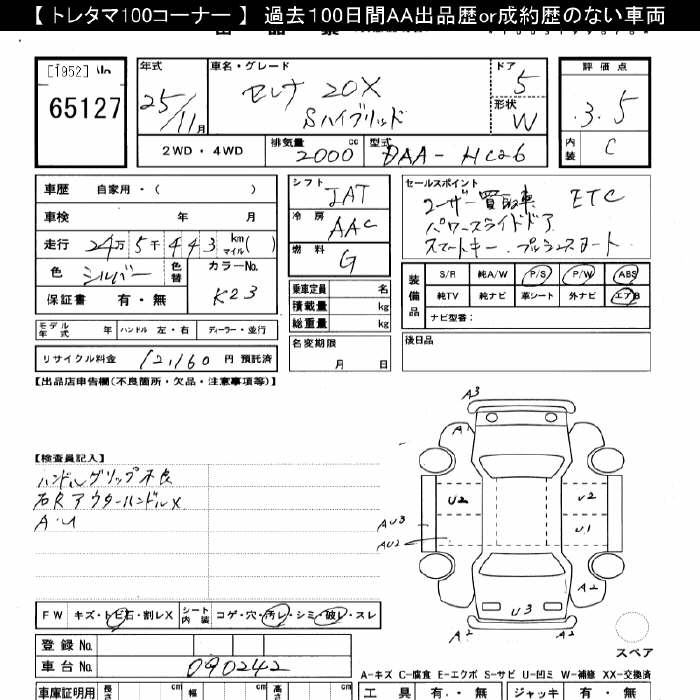 【 トレタマ100コーナー 】 過去100日間AA出品歴or成約歴のない車両
[1952] No
65127
年式
25/11月
車名・グレード
セレナ 20X
Sハイブリッド
ドア
5
形状
W
評価点
3.5
内装
C
2WD・4WD
排気量 2000 cc
型式 DAA-HC26
車歴 自家用・( )
車検 年 月
走行 24万5千443 km マイル( )
色 シルバー 色替 カラーNo. K23
保証書 有・無
モデル年式 年 ハンドル 左・右 ディーラー・並行
リサイクル料金 12,160 円 預託済
シフト IAT
冷房 AAC
燃料 G
乗車定員 名
積載量 kg
総重量 kg
名変期限
月 日
セールスポイント
ユーザー買取車 ETC
パワースライドドア
スマートキー プッシュスタート
装備品
S/R 純A/W P/S P/W ABS
純TV 純ナビ 革シート 外ナビ エアB
ナビ型番:
後日品
【出品店申告欄(不良箇所・欠品・注意事項等)】
【検査員記入】
ハンドルグリップ不良
右Rアウターハンドル×
A・U
A3
A1
U2
U2
AU3
AU2
U1
A2
U3
A2
A2
スペア
FW キズ・トビ石・割レX シート内装 コゲ・穴・汚レ・シミ・破レ・スレ
登録 No.
車台 No. 090242
A-キズ C-腐食 E-エクボ S-サビ U-凹ミ W-補修 XX-交換済
車庫証明用 長さ cm 幅 cm 高さ cm
工具 有・無 ジャッキ 有・無